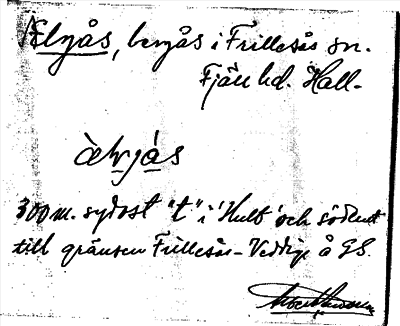 Elgås, bergås i Frillesås sn.
Fjäre hd. Hall.
àlvjás
300 m. sydost "t" i 'Hult' och söderut
till gränsen Frillesås-Veddige å GS.